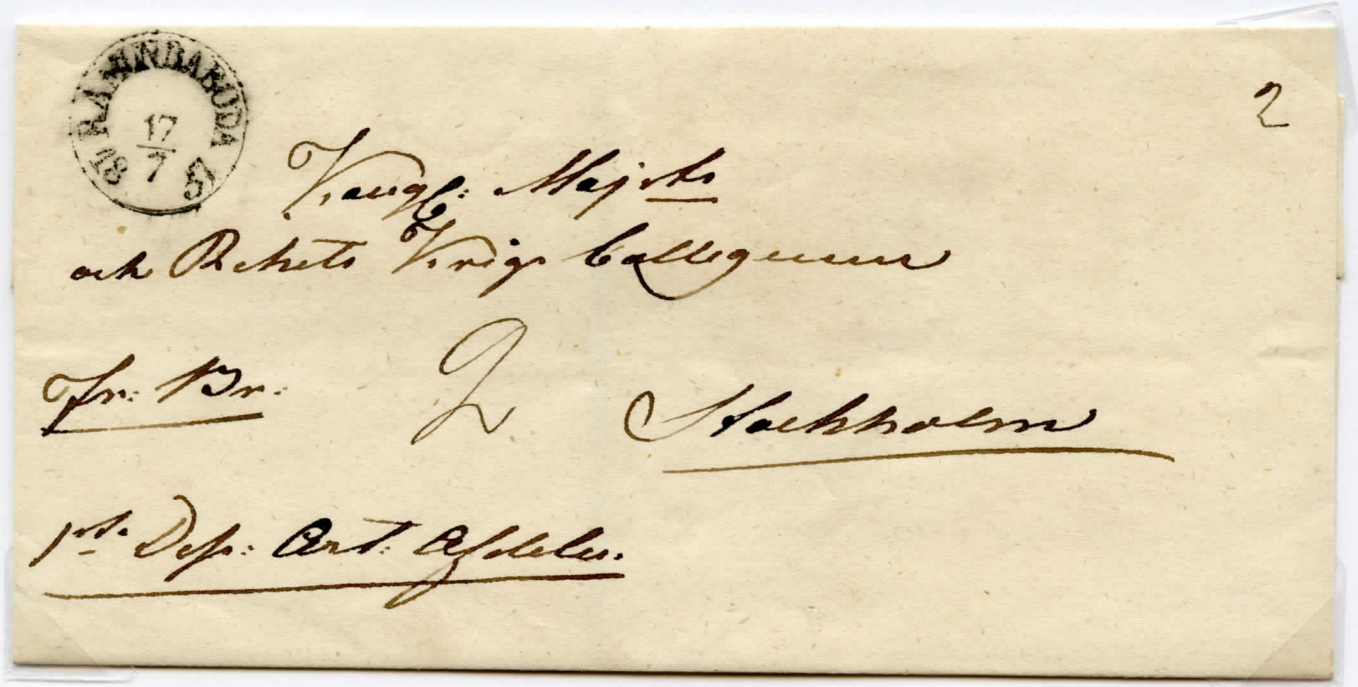 RÄMNBABODA
17
7
18 57
2
Kongl: Majsts
och Rikets Krigs Collegium
fr: Br. 2 Stockholm
1sta Dep: Art: Afdeln.